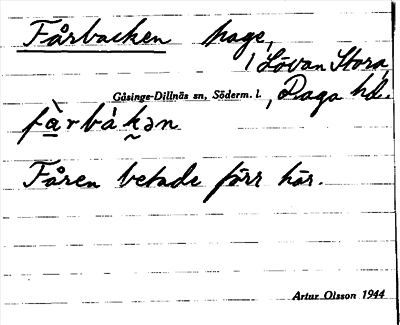 Fårbacken hage,
Lövan Stora,
Gåsinge-Dillnäs sn, Söderm. l., Daga hd.
fà̱rbàk̮ən
Fåren betade förr här.
Artur Olsson 1944